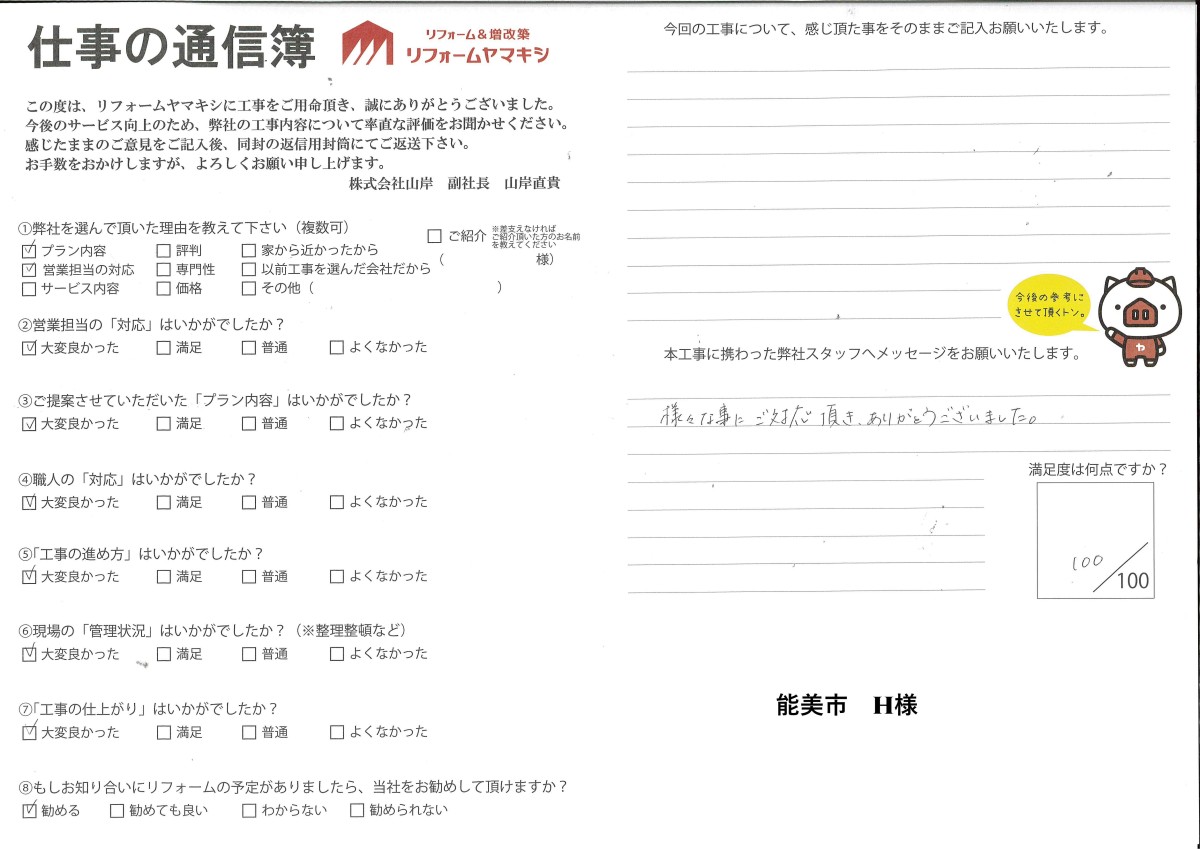 仕事の通信簿
リフォーム&増改築
リフォームヤマキシ
この度は、リフォームヤマキシに工事をご用命頂き、誠にありがとうございました。
今後のサービス向上のため、弊社の工事内容について率直な評価をお聞かせください。
感じたままのご意見をご記入後、同封の返信用封筒にてご返送下さい。
お手数をおかけしますが、よろしくお願い申し上げます。
株式会社山岸　副社長　山岸直貴
①弊社を選んで頂いた理由を教えて下さい（複数可）
☑プラン内容 □評判 □家から近かったから
☑営業担当の対応 □専門性 □以前工事を選んだ会社だから
□サービス内容 □価格 □その他（　　　）
□ご紹介 ※差支えなければ
ご紹介頂いた方のお名前
を教えてください
（　　　様）
②営業担当の「対応」はいかがでしたか？
☑大変良かった □満足 □普通 □よくなかった
③ご提案させていただいた「プラン内容」はいかがでしたか？
☑大変良かった □満足 □普通 □よくなかった
④職人の「対応」はいかがでしたか？
☑大変良かった □満足 □普通 □よくなかった
⑤「工事の進め方」はいかがでしたか？
☑大変良かった □満足 □普通 □よくなかった
⑥現場の「管理状況」はいかがでしたか？（※整理整頓など）
☑大変良かった □満足 □普通 □よくなかった
⑦「工事の仕上がり」はいかがでしたか？
☑大変良かった □満足 □普通 □よくなかった
⑧もしお知り合いにリフォームの予定がありましたら、当社をお勧めして頂けますか？
☑勧める □勧めても良い □わからない □勧められない
今回の工事について、感じ頂た事をそのままご記入お願いいたします。
今後の参考に
させて頂くトン。
ヤ
本工事に携わった弊社スタッフへメッセージをお願いいたします。
様々な事にご対応頂き、ありがとうございました。
満足度は何点ですか？
100/100
能美市　H様